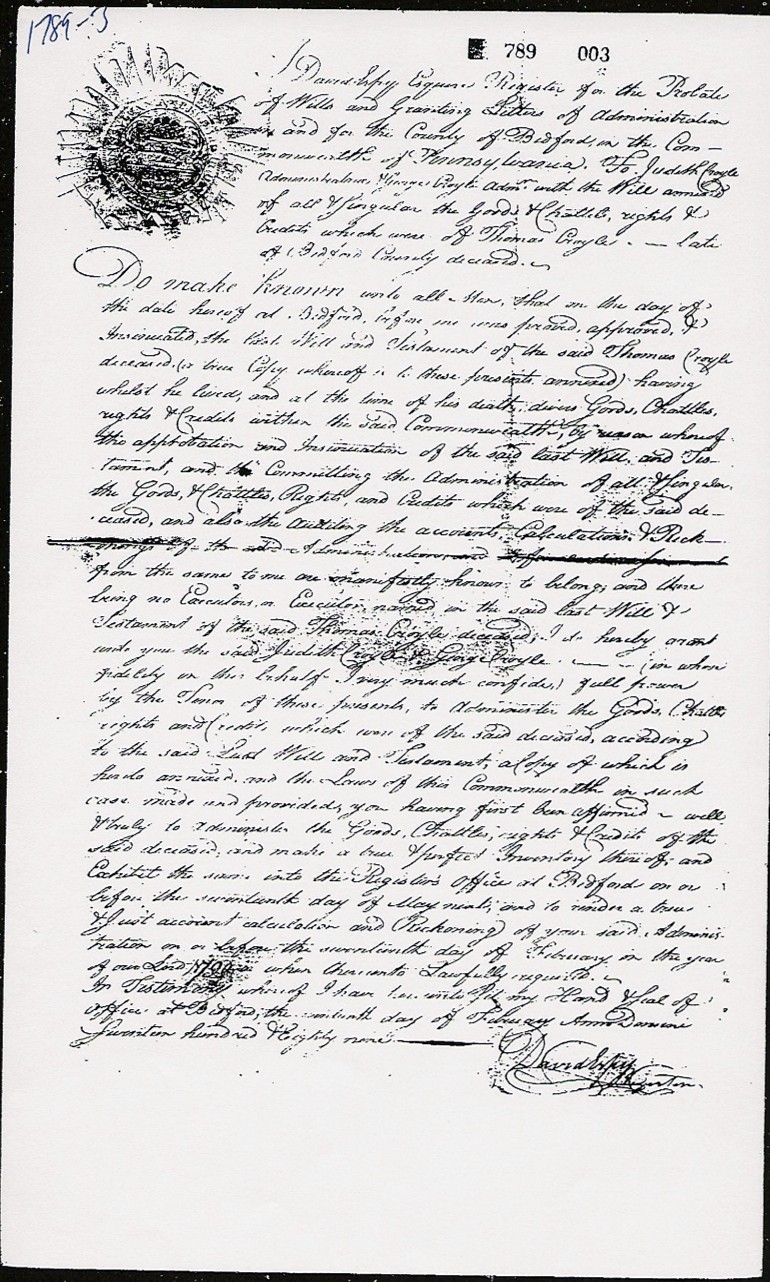 1789-3
789 003
I David Espy Esquire Register for the Probate
of Wills and Granting Letters of Administration
in and for the County of Bedford, in the Com-
monwealth of Pennsylvania. To Judith Croyle
Administratrix & George Croyle Admr. with the Will annexed
of all & Singular the Goods & Chattels, rights &
Credits which were of Thomas Croyle - late
of Bedford County deceased.
Do make known unto all Men, that on the day of
the date hereof at Bedford, before me was proved, approved, &
Insinuated, the last Will and Testament of the said Thomas Croyle
deceased, (a true Copy whereof is to these presents annexed) having
whilst he lived, and at the time of his death, divers Goods, Chattles,
rights & Credits within the said Commonwealth, by reason whereof
the approbation and Insinuation of the said last Will and Tes-
tament, and the Committing the Administration of all & Singular
the Goods, & Chattles, Rights, and Credits which were of the said de-
ceased, and also the auditing the accounts, Calculations & Reck-
onings of the said Administration and
from the same to me are manifestly known to belong; and there
being no Executors, or Executor, named in the said last Will &
Testament of the said Thomas Croyle deceased, I do hereby grant
unto you the said Judith Croyle & George Croyle - (in whose
fidelity in this behalf I very much confide,) full power
by the Tenor of these presents, to Administer the Goods, Chattles
rights and Credits, which were of the said deceased, according
to the said Last Will and Testament, a Copy of which is
hereto annexed, and the Laws of this Commonwealth in such
case made and provided, you having first been affirmed well
& truly to Administer the Goods, Chattles, rights & Credit of the
said deceased, and make a true & perfect Inventory thereof, and
Exhibit the same into the Register's Office at Bedford on or
before the seventeenth day of May next; and to render a true
& Just account calculation and Reckoning of your said Adminis-
tration on or before the seventeenth day of February in the year
of our Lord 1790 or when thereunto Lawfully required.
In Testimony whereof I have hereunto set my Hand & Seal of
Office at Bedford, the day of February Anno Domini
Seventeen hundred & Eighty nine
David Espy
Register